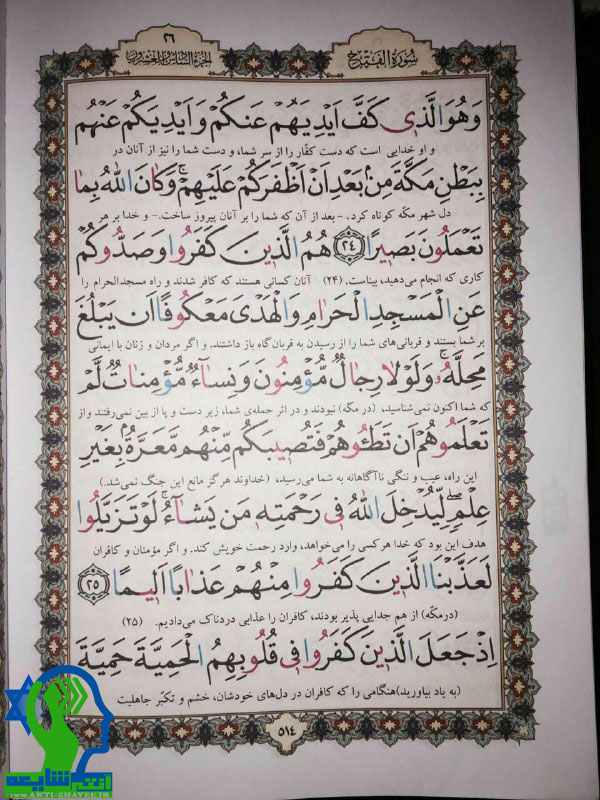 سُورَةُ الفَتْحِ
٢٦
الجُزءُ السّادِس وَالعِشرُونَ
وَهُوَ الَّذی كَفَّ اَیْدِیَهُمْ عَنْكُمْ وَ اَیْدِیَكُمْ عَنْهُمْ
و او خدایی است که دست کفّار را از سر شما، و دست شما را نیز از آنان در
بِبَطْنِ مَكَّةَ مِنْ بَعْدِ اَنْ اَظْفَرَكُمْ عَلَیْهِمْ وَ كانَ اللّٰهُ بِما
دل شهر مکّه کوتاه کرد. - بعد از آن که شما را بر آنان پیروز ساخت.- و خدا بر هر
تَعْمَلُونَ بَصیرًا ﴿٢٤﴾ هُمُ الَّذینَ كَفَرُوا وَ صَدُّوكُمْ
کاری که انجام می‌دهید، بیناست. (۲۴) آنان کسانی هستند که کافر شدند و راه مسجدالحرام را
عَنِ الْمَسْجِدِ الْحَرامِ وَ الْهَدْیَ مَعْكُوفًا اَنْ یَبْلُغَ
بر شما بستند و قربانی‌های شما را از رسیدن به قربان‌گاه باز داشتند. و اگر مردان و زنان با ایمانی
مَحِلَّهُ وَ لَوْلا رِجالٌ مُؤْمِنُونَ وَ نِساءٌ مُؤْمِناتٌ لَمْ
که شما اکنون نمی‌شناسید، (در مکّه) نبودند و در اثر حمله‌ی شما، زیر دست و پا از بین نمی‌رفتند و از
تَعْلَمُوهُمْ اَنْ تَطَئُوهُمْ فَتُصیبَكُمْ مِنْهُمْ مَعَرَّةٌ بِغَیْرِ
این راه، عیب و ننگی ناآگاهانه به شما می‌رسید، (خداوند هرگز مانع این جنگ نمی‌شد.)
عِلْمٍ لِیُدْخِلَ اللّٰهُ فی رَحْمَتِهِ مَنْ یَشاءُ لَوْ تَزَیَّلُوا
هدف این بود که خدا هر کسی را می‌خواهد، وارد رحمت خویش کند. و اگر مؤمنان و کافران
لَعَذَّبْنَا الَّذینَ كَفَرُوا مِنْهُمْ عَذابًا اَلیمًا ﴿٢٥﴾
(درمکّه) از هم جدایی پذیر بودند، کافران را عذابی دردناک می‌دادیم. (۲۵)
اِذْ جَعَلَ الَّذینَ كَفَرُوا فی قُلُوبِهِمُ الْحَمِیَّةَ حَمِیَّةَ
(به یاد بیاورید)هنگامی را که کافران در دل‌های خودشان، خشم و تکبّر جاهلیت
٥١٤
آنتی شایعه
WWW.ANTI-SHAYEE.IR